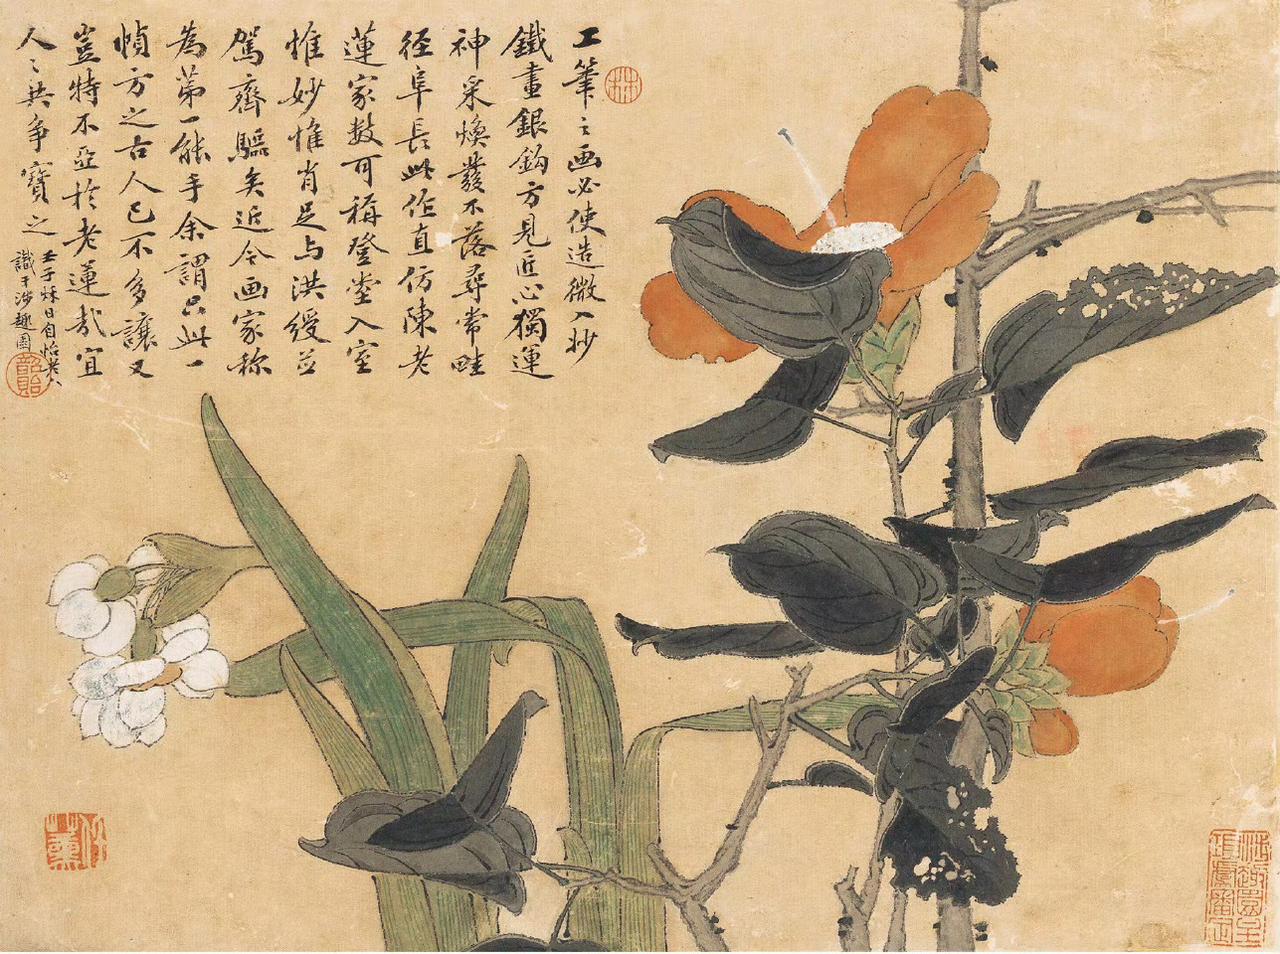 工筆之画必使造微入妙
鐵畫銀鈎方見匠心獨運
神采煥發不落尋常畦
徑阜長此作直仿陳老
蓮家數可稱登堂入室
惟妙惟肖足与洪綬並
駕齊驅矣近今画家称
為第一能手余謂只此一
幀方之古人已不多讓又
豈特不亞於老蓮哉宜
人之共爭寶之
壬子秌日自怡老人
識于涉趣園
任薰